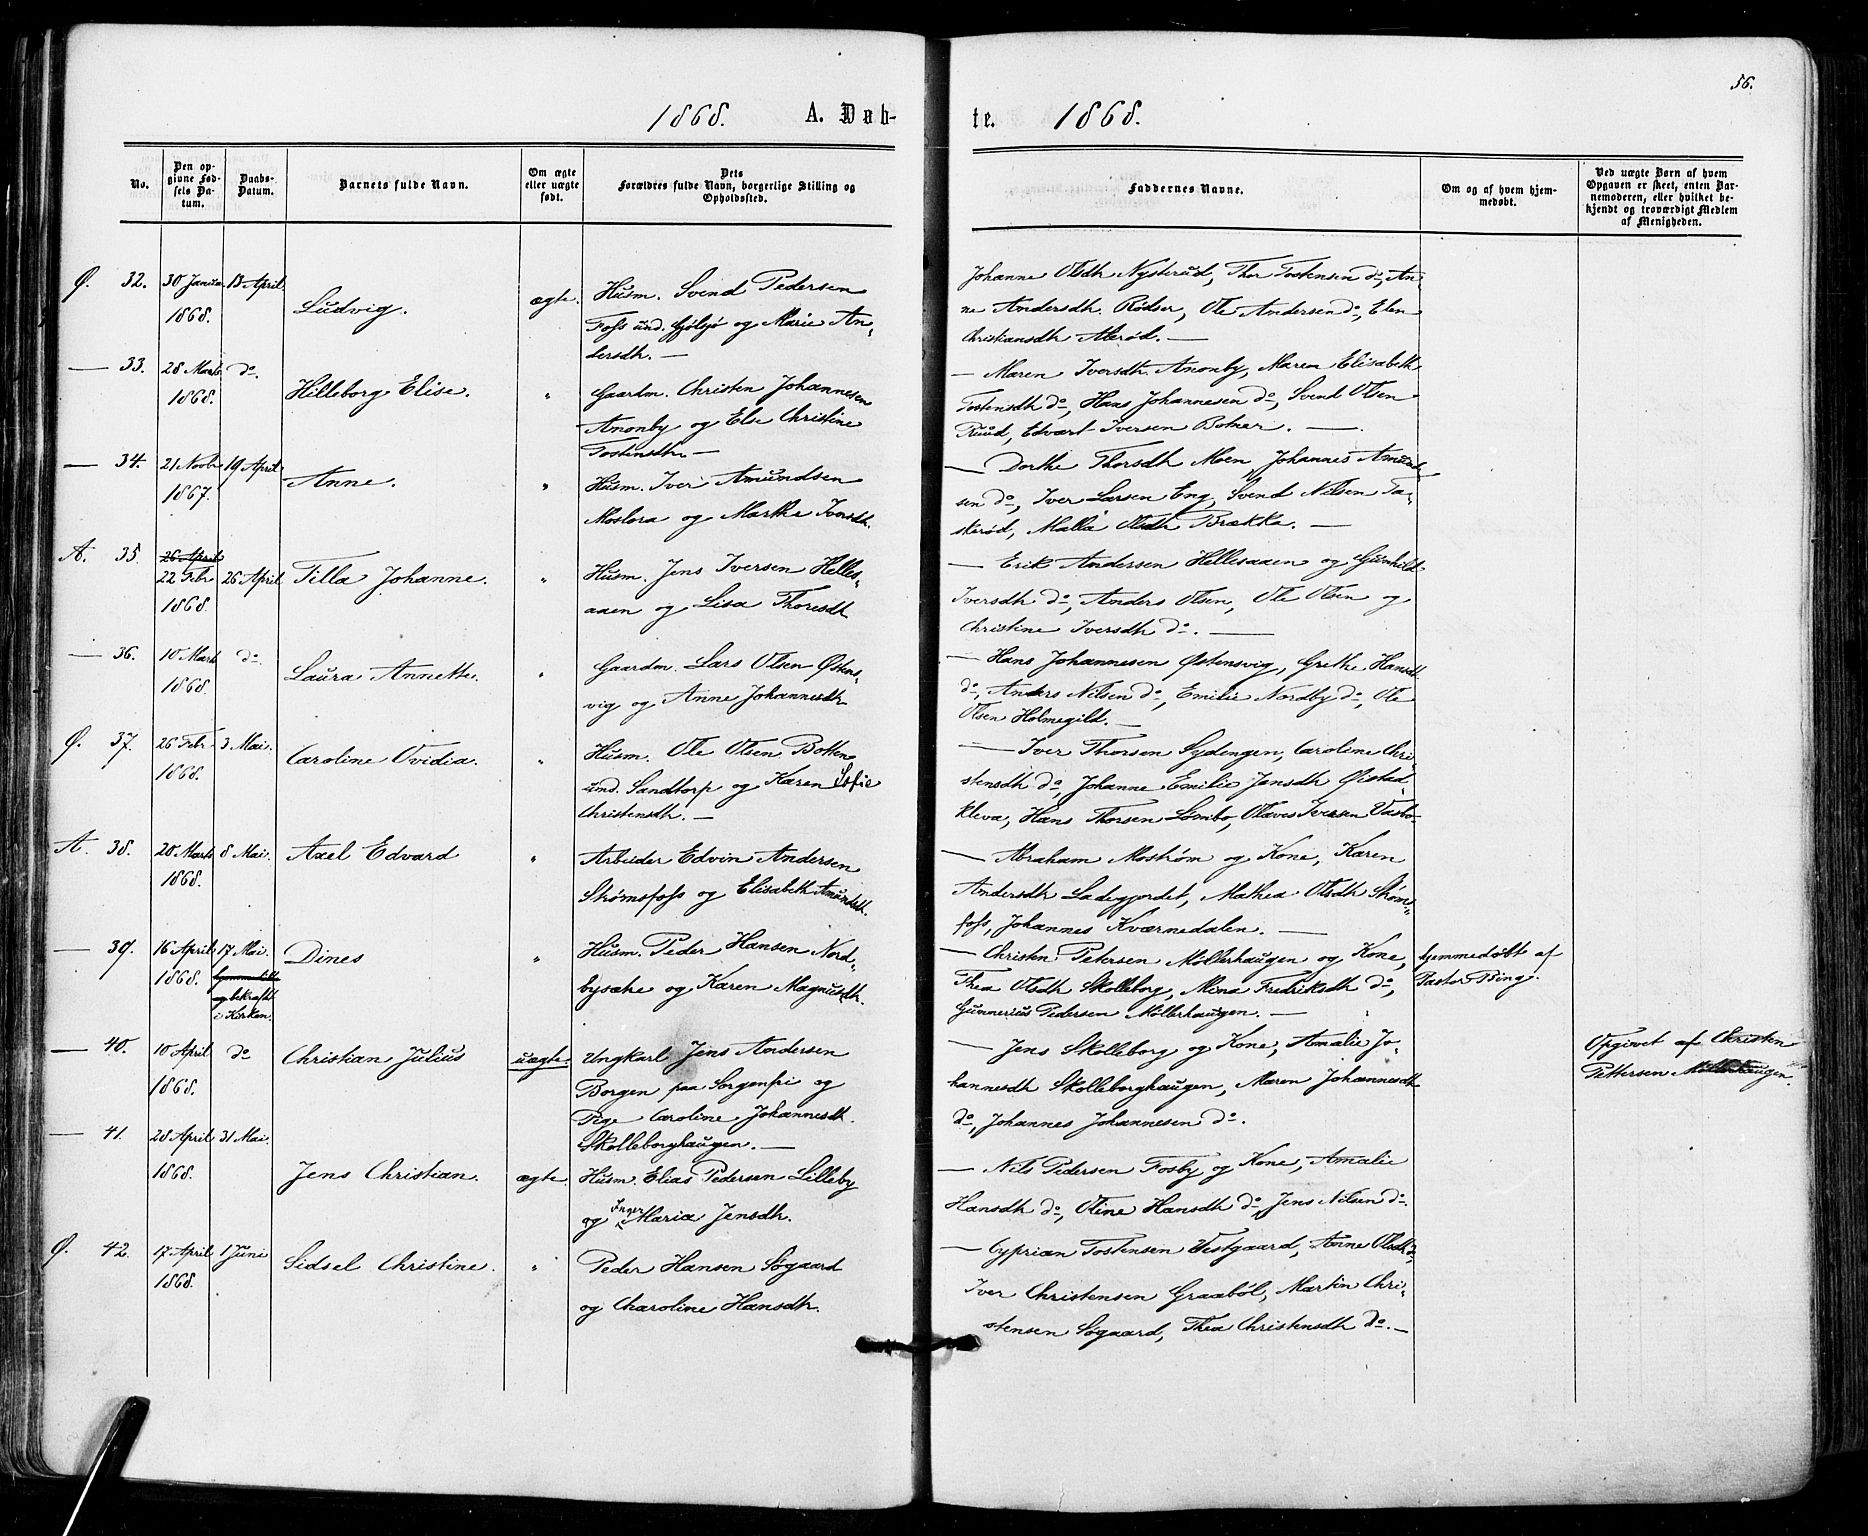 56.
1868. A. Døb-
te. 1868.
No.
Den op-
givne Fød-
sels Da-
tum.
Daabs-
Datum.
Barnets fulde Navn.
Om ægte
eller uægte
født.
Dets
Forældres fulde Navn, borgerlige Stilling og
Opholdssted.
Faddernes Navne.
Om og af hvem hjem-
medøbt.
Ved uægte Børn af hvem
Opgaven er skeet, enten Bar-
nemoderen, eller hvilket be-
kjendt og troværdigt Medlem
af Menigheden.
Ø. 32. 30 Januar 13 April
1868.
Ludvig.
ægte.
Husm. Svend Pedersen
Foss und. Fjølsjø og Marie An-
dersdh. —
Johanne Olsdh Nysterud, Thor Tostensen do, An-
ne Andersdh. Rødser, Ole Andersen do, Elen
Christiansdh Allerød. —
— 33. 28 Marts do.
1868.
Hilleborg Elise.
"
Gaardm. Christen Johannesen
Anonby og Else Christine
Tostensdh —
— Maren Iversdh. Anonby, Maren Elisabeth
Tostensdh do, Hans Johannesen do, Svend Olsen
Ruud, Edvart Iversen Botner. —
— 34. 21 Novbr 19 April
1867.
Anne.
"
Husm. Iver Amundsen
Moslora og Marthe Iversdh.
— Dorthe Thorsdh Moen, Johannes Amund-
sen do, Iver Larsen Eng, Svend Nilsen Ta-
skerød, Malla Olsdh Brække. —
A. 35. 26 April
22 Febr 26 April
1868.
Tilla Johanne.
"
Husm. Jens Iversen Helles-
aaen og Lisa Thoresdh
— Erik Andersen Hellesaaen og Gunhild
Iversdh do, Anders Olsen, Ole Olsen og
Christine Iversdh do. —
— 36. 10 Marts do.
1868.
Laura Annette.
"
Gaardm. Lars Olsen Østens-
vig og Anne Johannesdh
— Hans Johannesen Østensvig, Grethe Hansdh
do, Anders Nilsen do, Emilie Nordby do, Ole
Olsen Holmegild. —
Ø. 37. 26 Febr 3 Mai.
1868.
Caroline Ovidia.
"
Husm. Ole Olsen Botten
und. Sandtorp og Karen Sofie
Christensdh. —
— Iver Thorsen Sydengen, Caroline Chri-
stensdh do, Johanne Emilie Jensdh Øistad
kleva, Hans Thorsen Lømbo, Olaves Iversen Vasbo-
A. 38. 20 Marts 8 Mai.
1868.
Axel Edvard
"
Arbeider Edvin Andersen
Strømsfoss og Elisabeth Amundsdh.
— Abraham Mostrøm og Kone, Karen
Andersdh Ladegjordet, Mathea Olsdh Strøms-
foss, Johannes Kværnedalen. —
— 39. 16 April 17 Mai.
1868.
og bekræftet
i Kirken.
Dines
"
Husm. Peder Hansen Nord-
bysætre og Karen Magnusdh.
— Christen Petersen Møllerhaugen og Kone,
Thea Olsdh Skolleborg, Mina Fredriksdh do,
Gunnerius Pedersen Møllerhaugen. —
hjemmedøbt af
Pastor Bing.
— 40. 10 April do
1868.
Christian Julius
uægte.
Ungkarl Jens Andersen
Borgen paa Sorgenfri og
Pige Caroline Johannesdh.
Skolleborghaugen. —
— Jens Skolleborg og Kone, Amalie Jo-
hannesdh Skolleborghaugen, Maren Johannesdh
do, Johannes Johannesen do.
Opgivet af Christen
Pettersen Møllerhaugen.
— 41. 28 April 31 Mai.
1868.
Jens Christian.
ægte.
Husm. Elias Pedersen Lilleby
og Inger Maria Jensdh.
— Nils Pedersen Fosby og Kone, Amalie
Hansdh do, Oline Hansdh do, Jens Nilsen do.
Ø. 42. 17 April 1 Juni
1868.
Sidsel Christine.
"
Peder Hansen Søgaard
og Charoline Hansdh.
— Cyprian Tostensen Vestgaard, Anne Olsdh do,
Iver Christensen Graabøl, Martin Chri-
stensen Søgaard, Thea Christensdh do. —